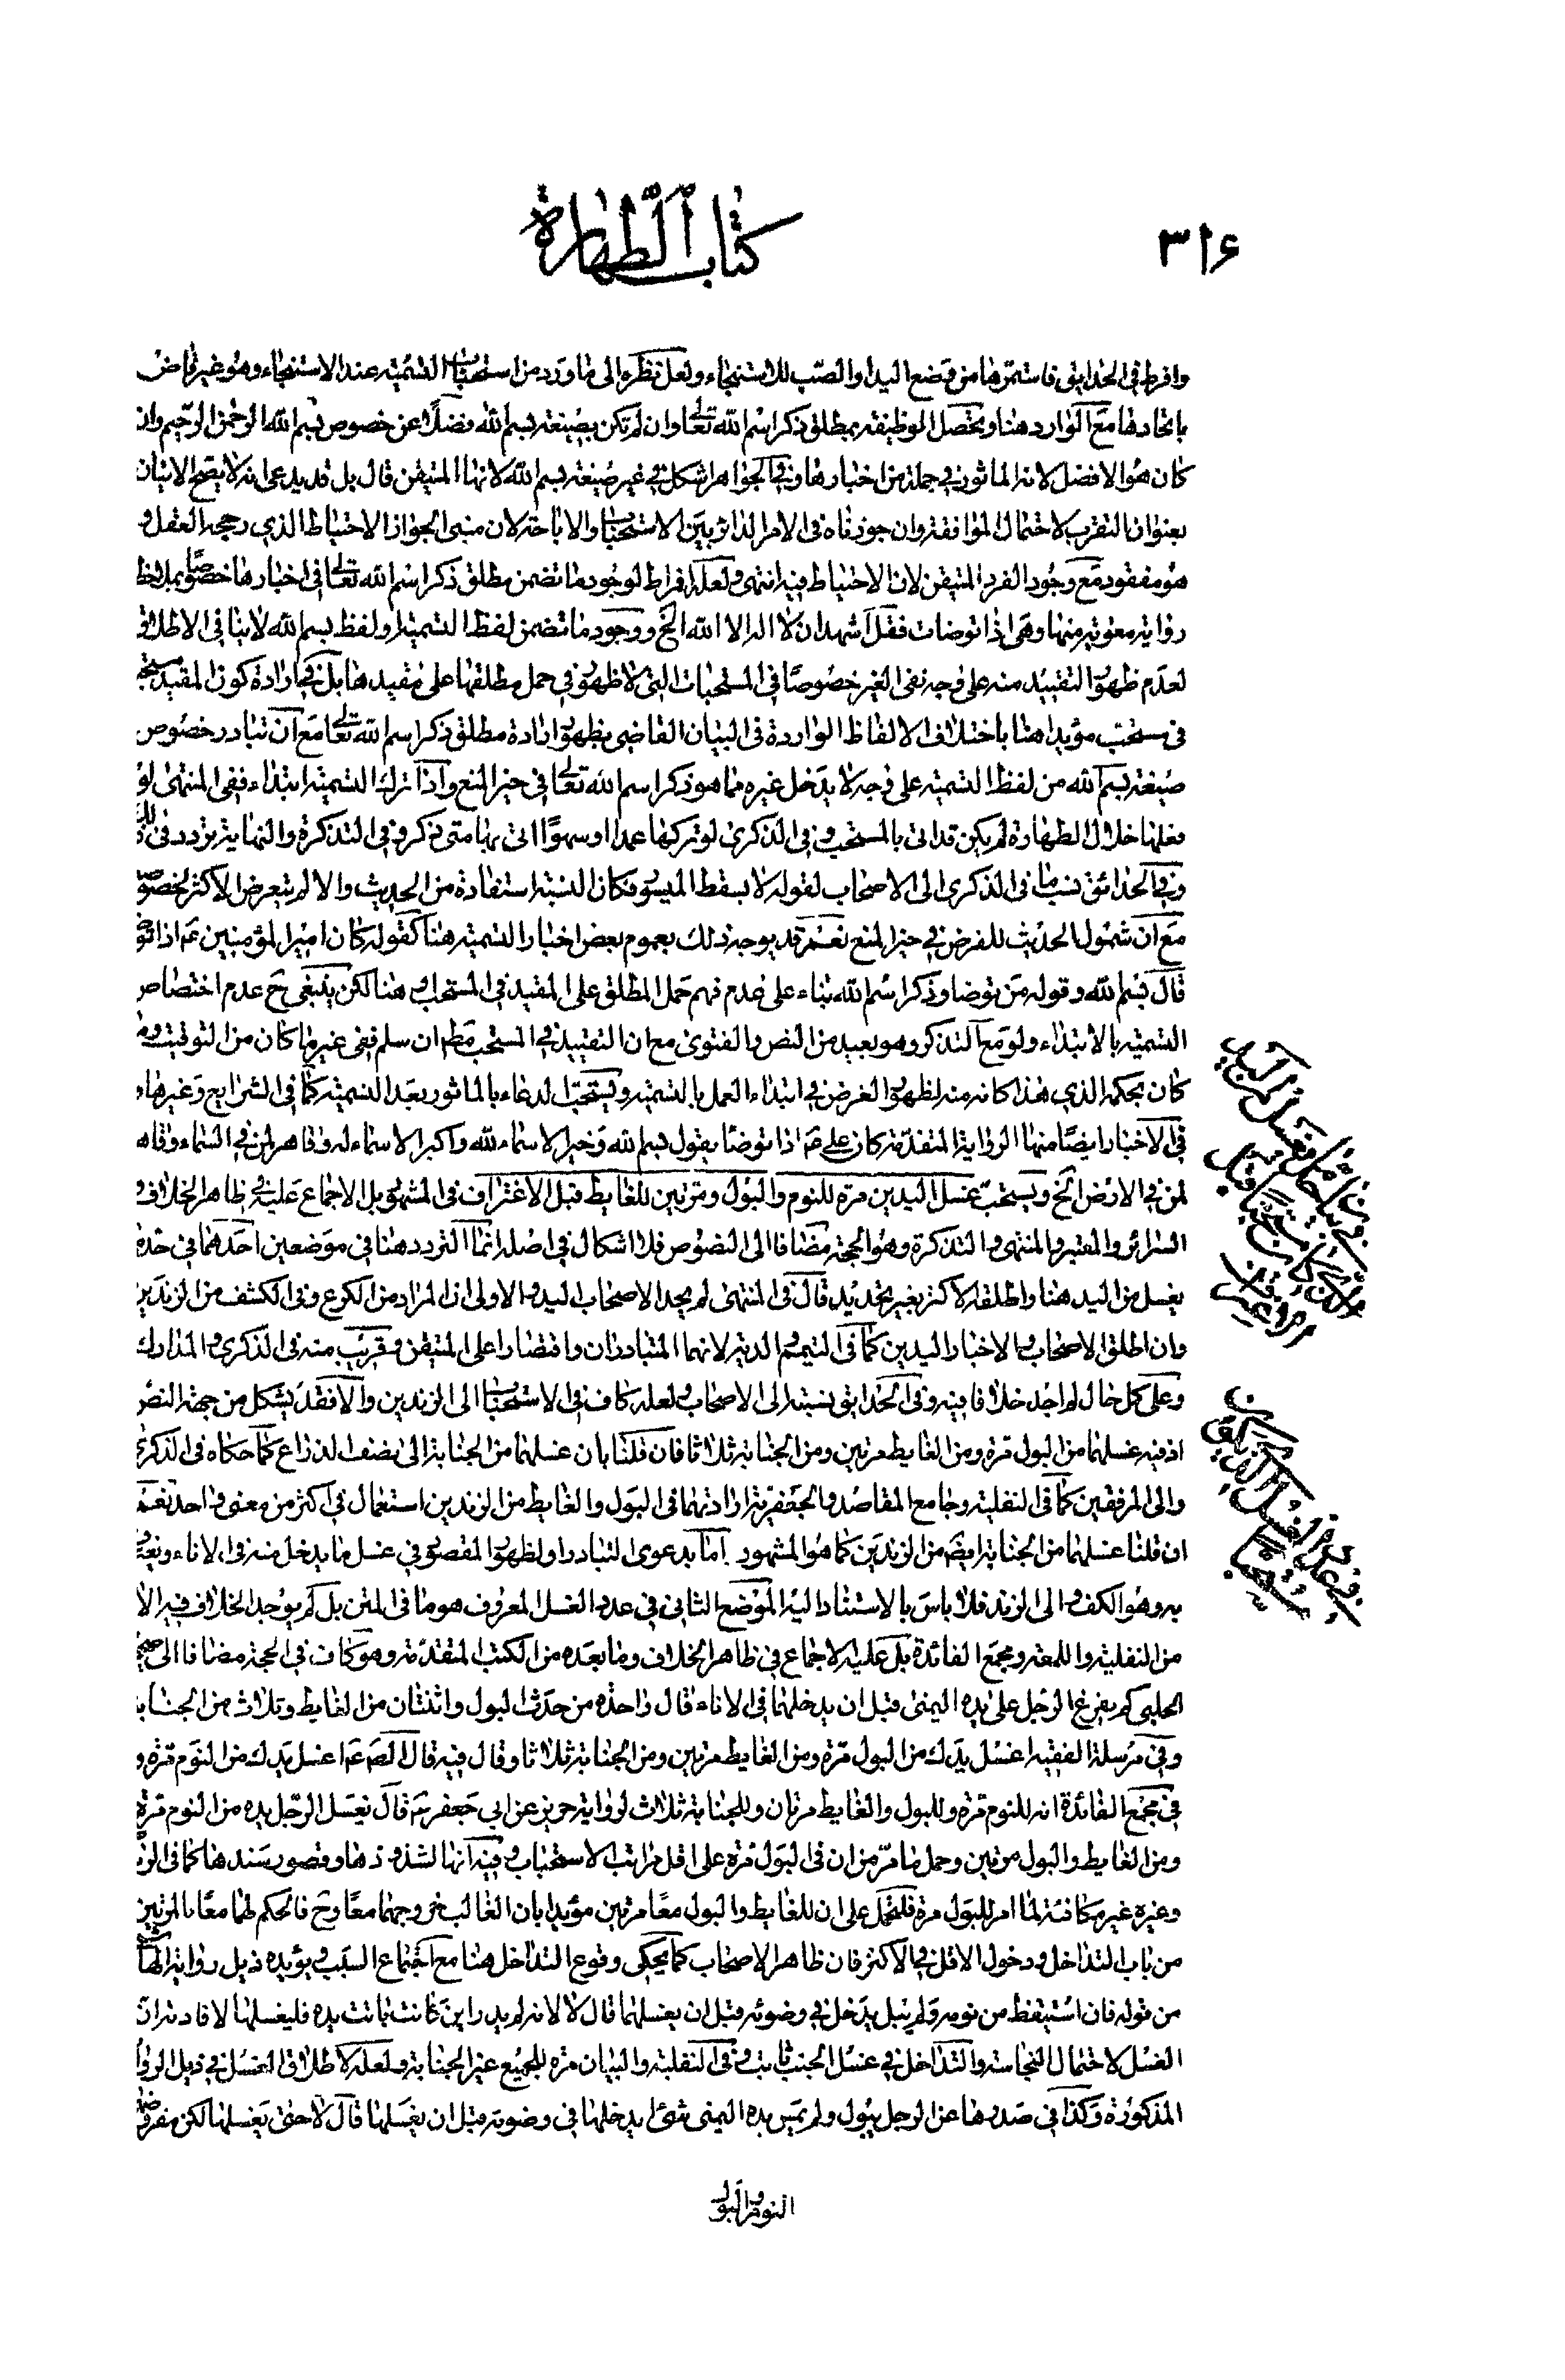 ٣١۶
كتاب الطهارة
وافرط في الحدائق فاستمرها من وضع اليد والصب للاستنجاء ولعل نظره الى ما ورد من استحباب التسمية عند الاستنجاء وهو غير قاض
باتحادها مع الوارد هنا وتحصل الوظيفة بمطلق ذكر اسم الله تعالى وان لم تكن بصيغة بسم الله فضلا عن خصوص بسم الله الرحمن الرحيم وان
كان هو الافضل لانه الماثور في جملة من اخبارها وفي الجواهر اشكل في غير صيغة بسم الله لانها المتيقن قال بل قد يدعى انه لا يصح الاتيان
بعنوان التقرب لاحتمال الموافقة وان جوزناه في الامر الدائر بين الاستحباب والاباحة لان مبنى الجواز الاحتياط الذي رجحه العقل و
هو مفقود مع وجود الفرد المتيقن لان الاحتياط فيه انتهى ولعله افراط لوجود ما تضمن مطلق ذكر اسم الله تعالى في اخبارها خصوصا بملاحظة
رواية معوية منها وهي اذا توضات فقل اشهد ان لا اله الا الله الخ ووجود ما تضمن لفظ التسمية او لفظ بسم الله لا ينافي الاطلاق
لعدم ظهور التقييد منه على وجه نفى الغير خصوصا في المستحبات التي لا ظهور في حمل مطلقها على مقيدها بل في ارادة كون المقيد مستحبا
في مستحب مؤيدا هنا باختلاف الالفاظ الواردة في البيان القاضي بظهور ارادة مطلق ذكر اسم الله تعالى مع ان تبادر خصوص
صيغة بسم الله من لفظ التسمية على وجه لا يدخل غيره مما هو ذكر اسم الله تعالى في حيز المنع واذا ترك التسمية ابتداء ففي المنتهى لو
فعلها خلال الطهارة لم يكن قد اتى بالمستحب وفي الذكرى لو تركها عمدا او سهوا اتى بها متى ذكر وفي التذكرة والنهاية تردد في
وفي الحدائق نسب ما في الذكرى الى الاصحاب لقوله لا يسقط الميسور فكان النسبة استفادة من الحديث والا لم يتعرض الاكثر لخصوصه
مع ان شمول الحديث للفرض في حيز المنع نعم قد يوجه ذلك بعموم بعض اخبار التسمية هنا كقوله كان امير المؤمنين ع اذا توضأ
قال بسم الله وقوله من توضا وذكر اسم الله بناء على عدم فهم حمل المطلق على المقيد في المستحب هنا لكن ينبغي ح عدم اختصاص
التسمية بالابتداء ولو مع التذكر وهو بعيد من النص والفتوى مع ان التقييد في المستحب مط ان سلم ففي غير ما كان من التوقيت وما
كان بحكمه الذي هذا كانه منه لظهور الغرض في ابتداء العمل بالتسمية ويستحب الدعاء بالماثور بعد التسمية كما في الشرايع وغيرها و
في الاخبار ايضا منها الرواية المتقدمة كان علي ع اذا توضا يقول بسم الله وخير الاسماء لله واكبر الاسماء لله وقاهر لمن في السماء وقاهر
لمن في الارض الخ ويستحب غسل اليدين مرة للنوم والبول ومرتين للغايط قبل الاغتراف في المشهور بل الاجماع عليه في ظاهر الخلاف و
السرائر والمعتبر والمنتهى والتذكرة وهو الحجة مضافا الى النصوص فلا اشكال في اصله انما التردد هنا في موضعين احدهما في حد ما
يغسل من اليد هنا واطلقه الاكثر بغير تحديد قال في المنتهى لم يحد الاصحاب اليد والاولى ان المراد من الكوع وفي الكشف من الزندين
وان اطلق الاصحاب والاخبار اليدين كما في التيمم والدية لانهما المتبادران واقتصارا على المتيقن وقريب منه في الذكرى والمدارك
وعلى كل حال لم اجد خلافا فيه وفي الحدايق نسبته الى الاصحاب ولعله كاف في الاستحباب الى الزندين والا فقد يشكل من جهة النص
اذ فيه غسلهما من البول مرة ومن الغايط مرتين ومن الجنابة ثلاثا فان قلنا بان غسلهما من الجنابة الى نصف الذراع كما حكاه في الذكرى
والى المرفقين كما في النفلية وجامع المقاصد والجعفرية ارادتهما في البول والغايط من الزندين استعمال في اكثر من معنى واحد نعم
ان قلنا غسلهما من الجنابة ايضا من الزندين كما هو المشهور اما بدعوى التبادر او لظهور المقصود في غسل ما يدخل منه في الاناء
به وهو الكف الى الزند فلا باس بالاستناد اليه الموضع الثاني في عدد الغسل المعروف هو ما في المتن بل لم يوجد الخلاف فيه الا
من النفلية واللمعة ومجمع الفائدة بل عليه الاجماع في ظاهر الخلاف وما بعده من الكتب المتقدمة وهو كاف في الحجة مضافا الى صحيح
الحلبي كم يفرغ الرجل على يده اليمنى قبل ان يدخلها في الاناء قال واحدة من حدث البول واثنتان من الغايط وثلاث من الجنابة
وفي مرسلة الفقيه اغسل يدك من البول مرة ومن الغايط مرتين ومن الجنابة ثلاثا وقال فيه قال الصادق ع اغسل يدك من النوم مرة و
في مجمع الفائدة انه للنوم مرة وللبول والغايط مرتان وللجنابة ثلاث لرواية حريز عن ابي جعفر ع قال يغسل الرجل يده من النوم مرة
ومن الغايط والبول مرتين وحمل ما مر من ان في البول مرة على اقل مراتب الاستحباب وفيه انها لشذوذها وقصور سندها كما في
وغيره غير مكافئة لما امر للبول مرة فلتحمل على ان للغايط والبول معا مرتين مؤيدا بان الغالب خروجهما معا وح فالحكم لهما معا بالمرتين
من باب التداخل ودخول الاقل في الاكثر فان ظاهر الاصحاب كما يحكى وقوع التداخل هنا مع اجتماع السبب ويؤيده ذيل رواية الهاشمي
من قوله فان استيقظ من نومه ولم يبل يدخل في وضوئه قبل ان يغسلها قال لا لانه لم يدر اين كانت باتت يده فليغسلها لافادته ان
الغسل لاحتمال النجاسة والتداخل في غسل الجنب ثابت وفي النفلية والبيان مرة للجميع غير الجنابة ولعله لاطلاق الغسل في ذيل الرواية
المذكورة وكذا في صدرها عن الرجل يبول ولم يمس يده اليمنى شئ ايدخلها في وضوئه قبل ان يغسلها قال لا حتى يغسلها لكن مفروضه
النوم والبول